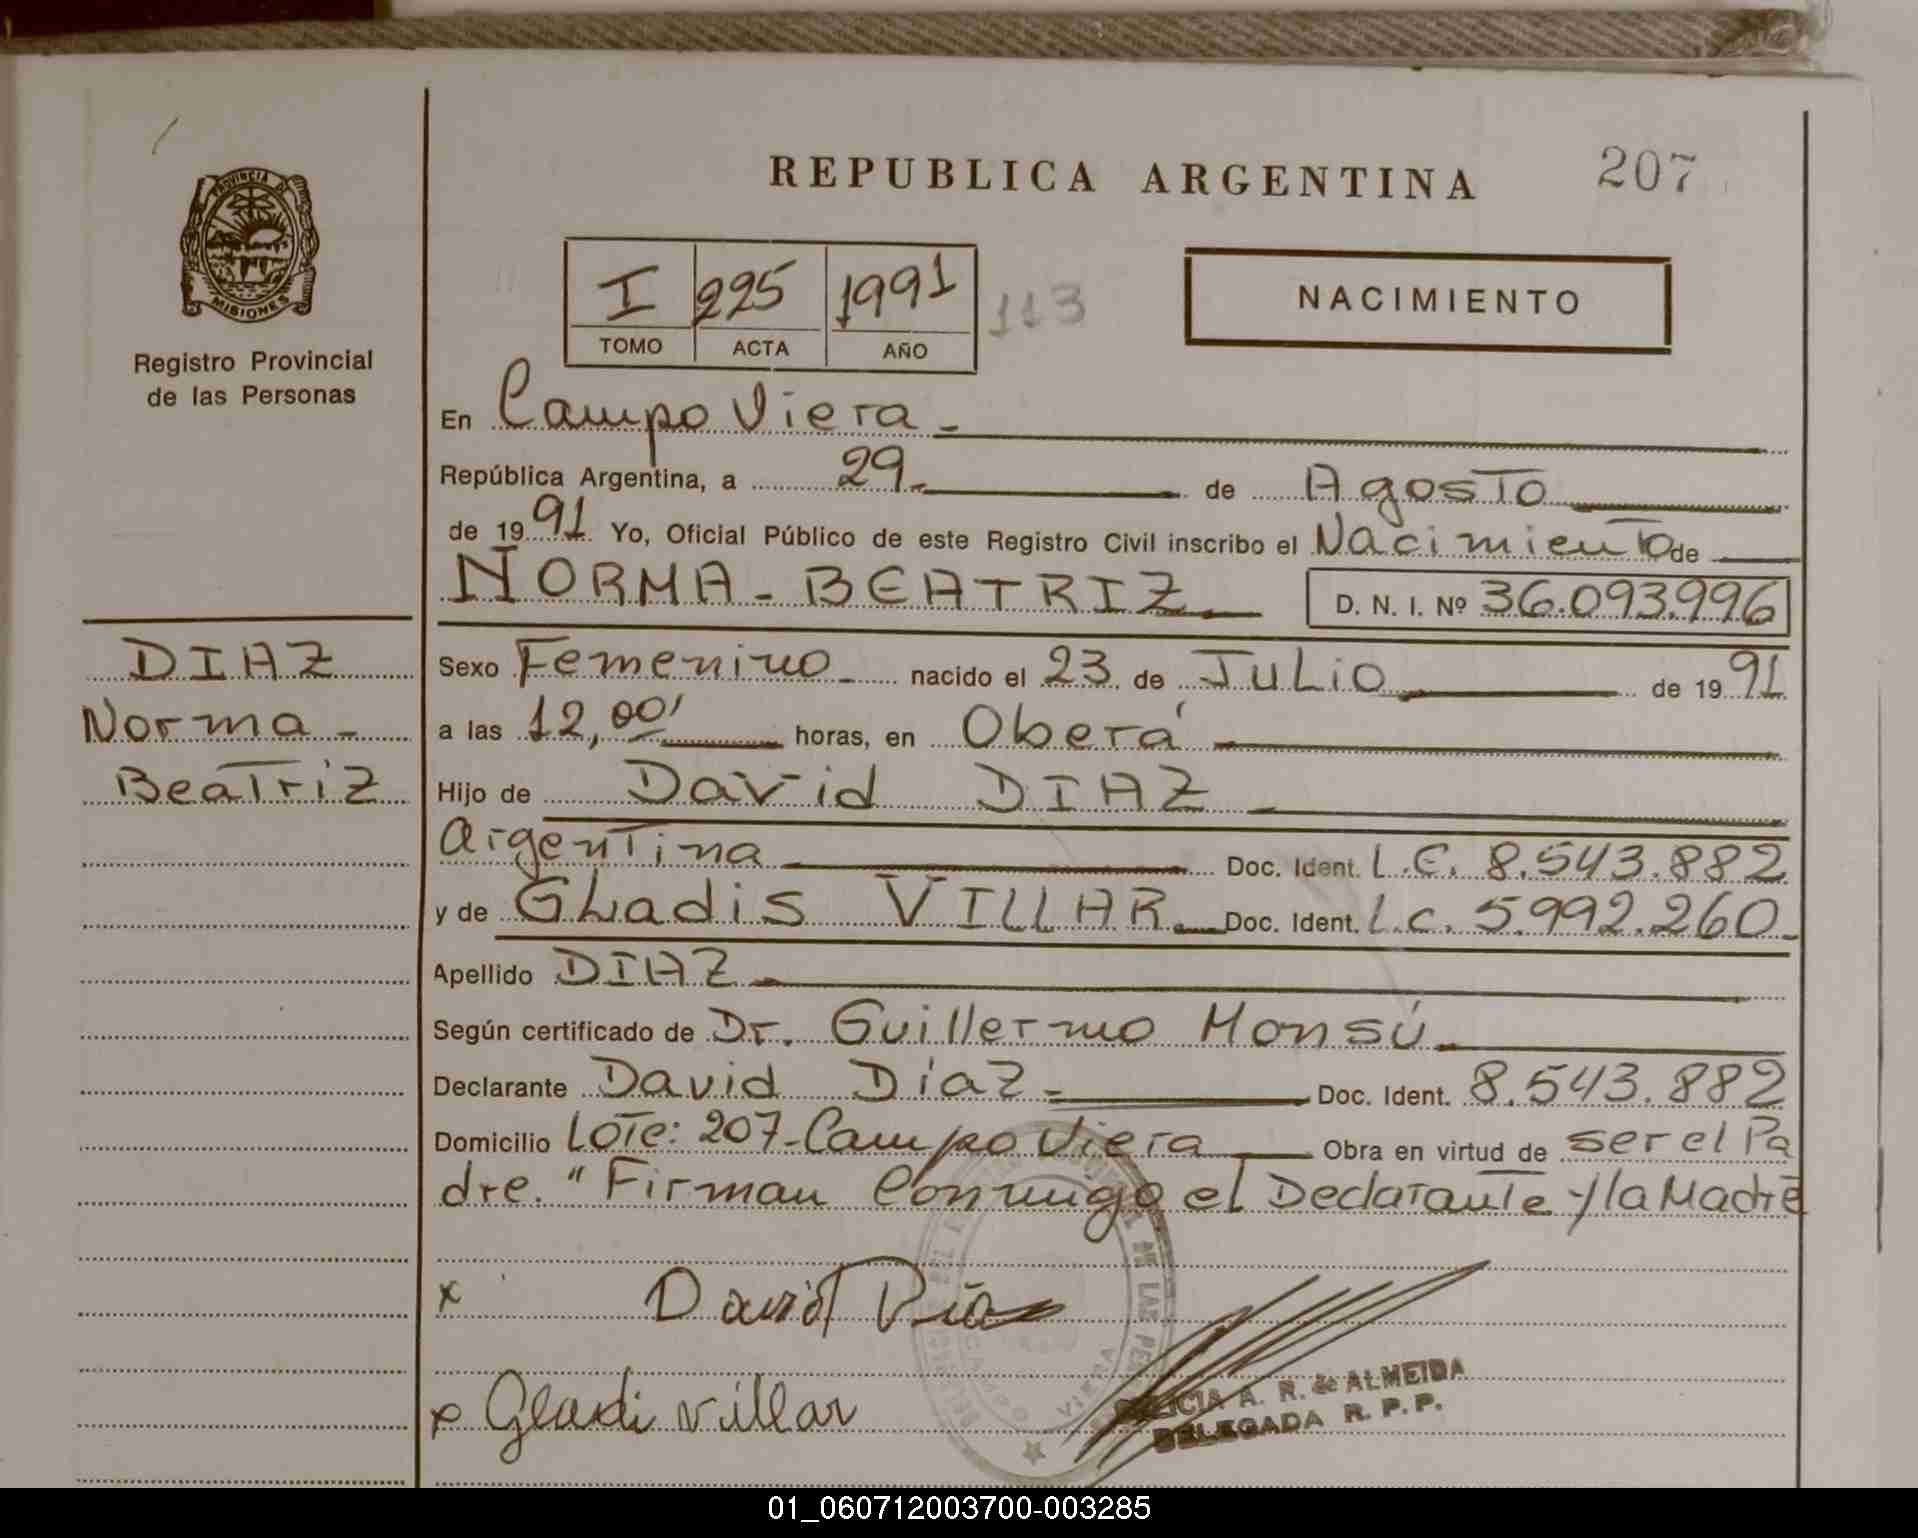 REPUBLICA ARGENTINA
207
PROVINCIA DE
MISIONES
Registro Provincial
de las Personas
I 225 1991
TOMO ACTA AÑO
113
NACIMIENTO
En Campo Viera
República Argentina, a 29 de Agosto
de 1991 Yo, Oficial Público de este Registro Civil inscribo el Nacimiento de
NORMA - BEATRIZ D. N. I. Nº 36.093.996
DIAZ
Norma
Beatriz
Sexo Femenino nacido el 23 de Julio de 1991
a las 12,00' horas, en Oberá
Hijo de David DIAZ
Argentina Doc. Ident. L.E. 8.543.882
y de GLadis VILLAR Doc. Ident. L.C. 5.992.260
Apellido DIAZ
Según certificado de Dr. Guillermo Monsú
Declarante David Díaz Doc. Ident. 8.543.882
Domicilio Lote: 207-Campo Viera Obra en virtud de ser el Pa
dre. "Firman Conmigo el Declarante y la Madre
x David Díaz
x Gladi villar
A. R. de ALMEIDA
DELEGADA R. P. P.
CAMPO VIERA
01_060712003700-003285